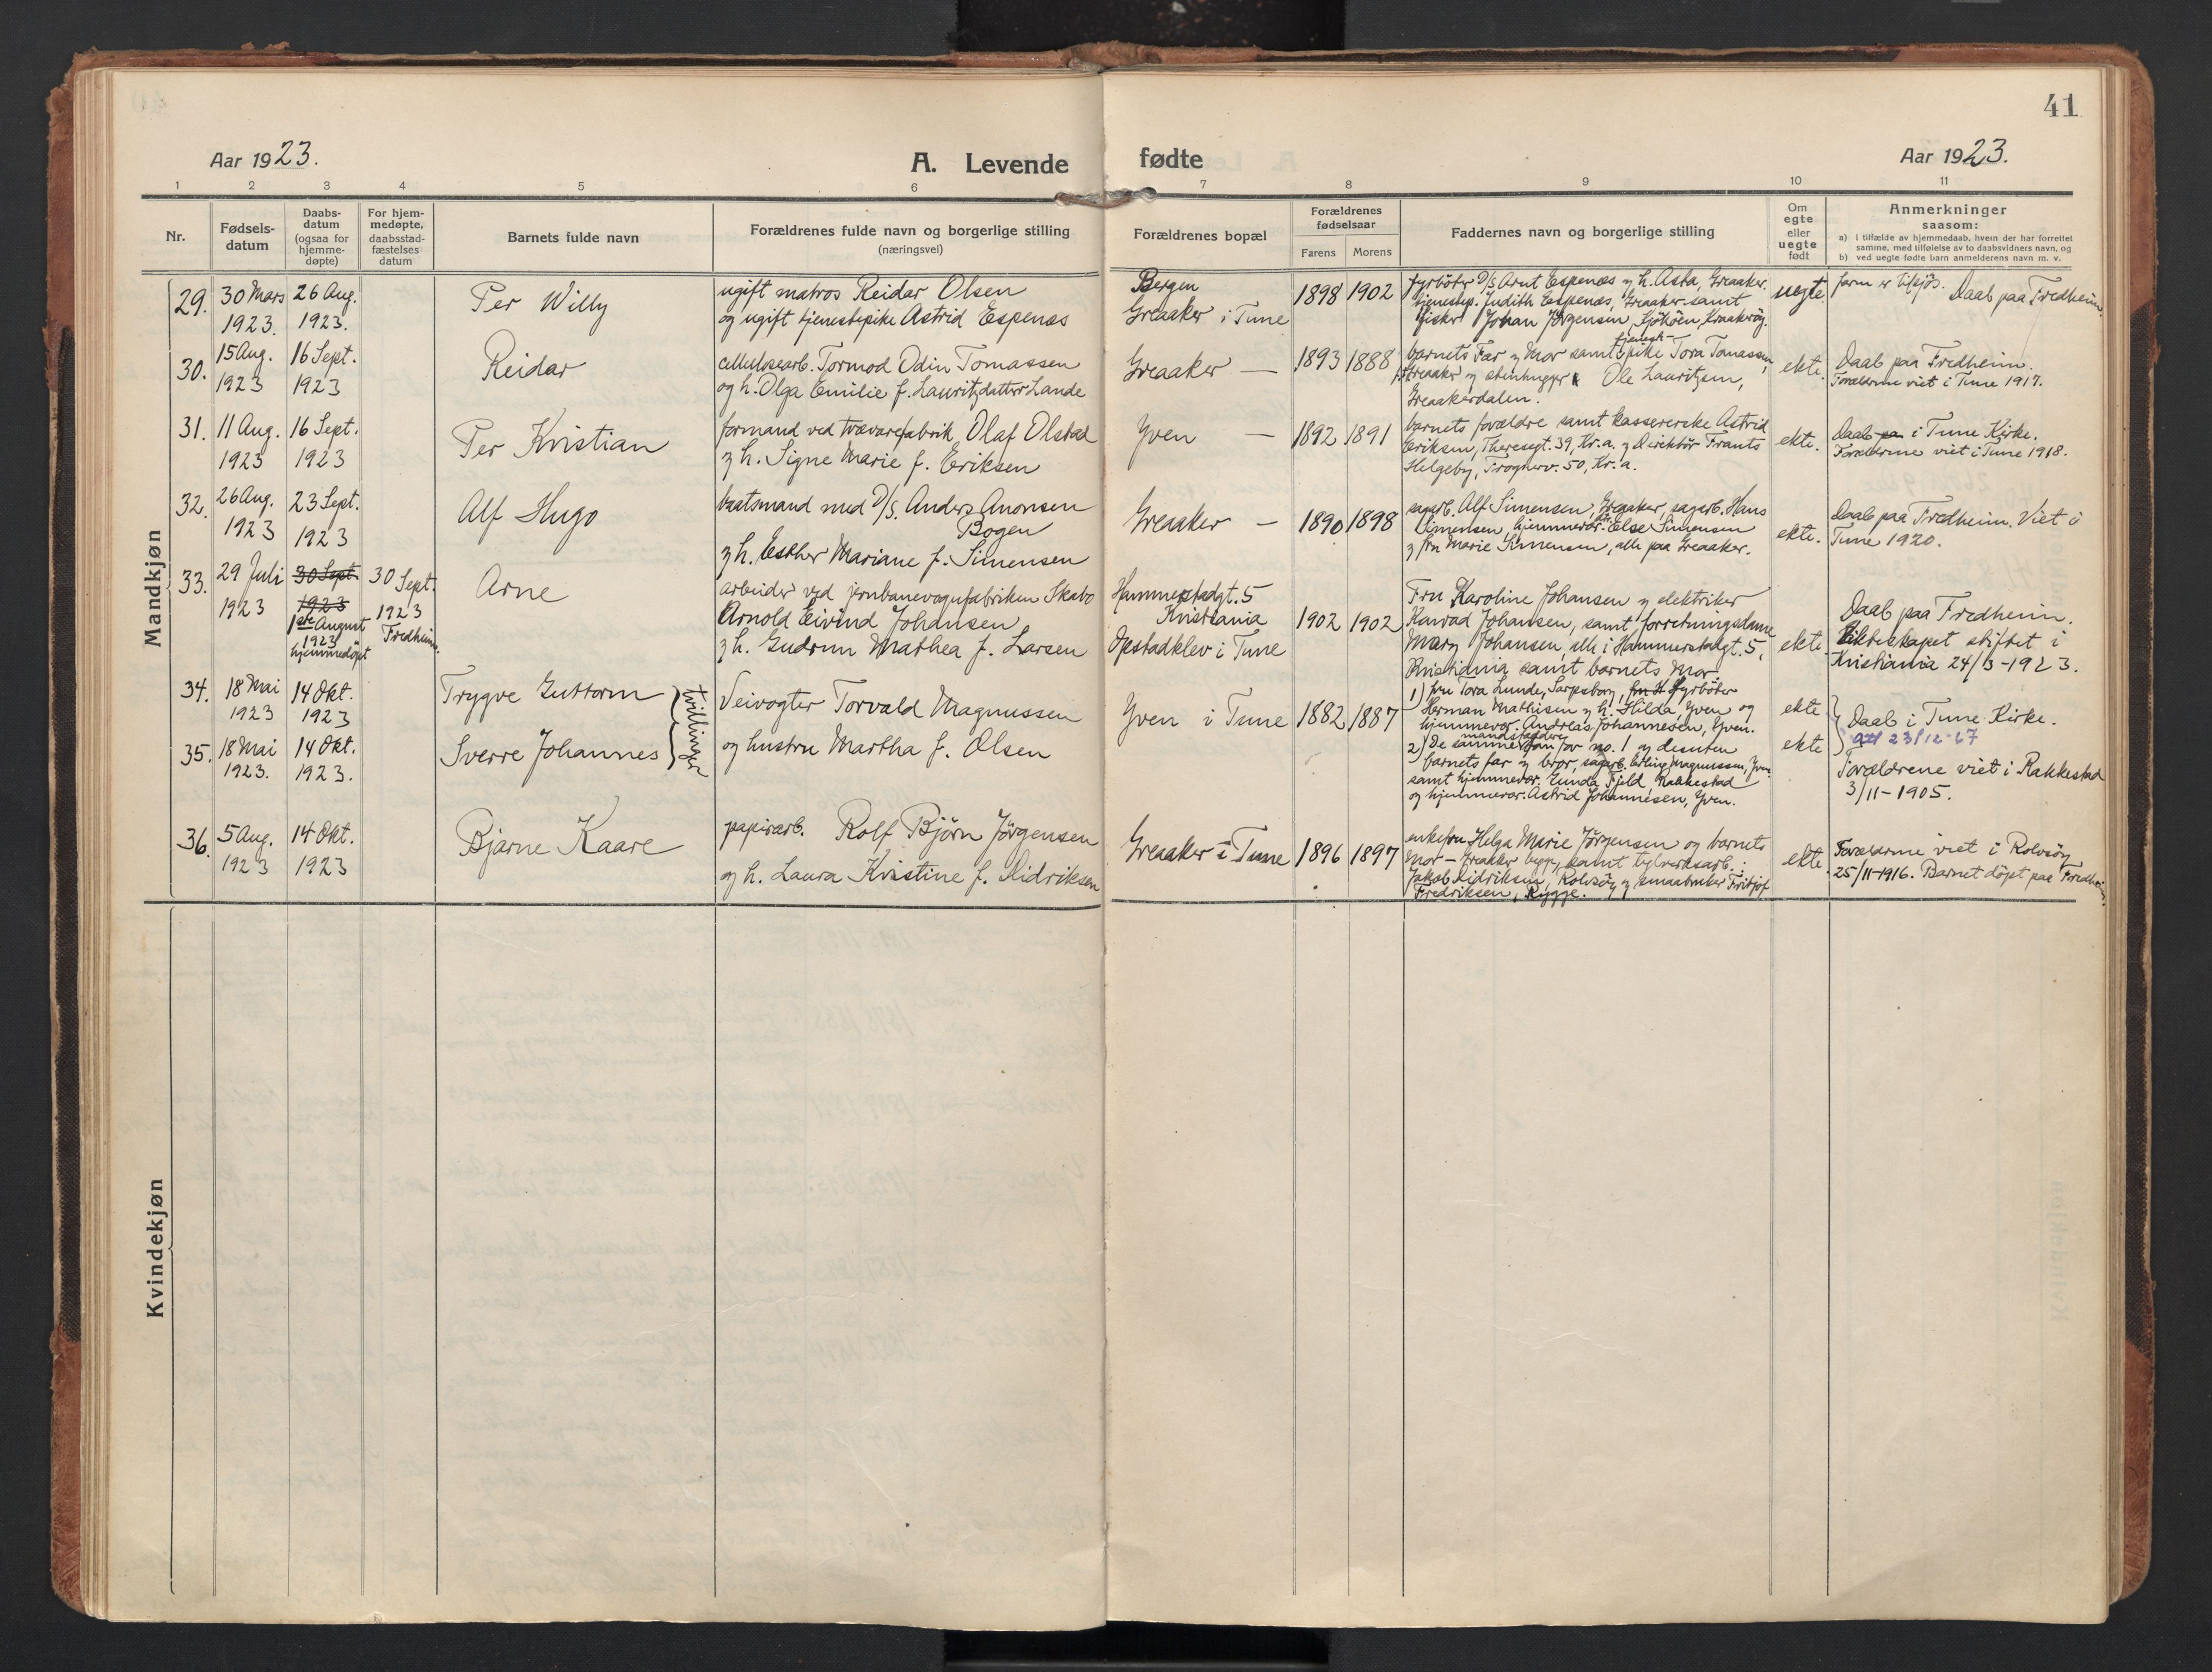 41
Aar 1923.
A. Levende fødte
Aar 1923.
1 2 3 4 5 6 7 8 9 10 11
Nr.
Fødsels-
datum
Daabs-
datum
(ogsaa for
hjemme-
døpte)
For hjem-
medøpte,
daabsstad-
fæstelses
datum
Barnets fulde navn
Forældrenes fulde navn og borgerlige stilling
(næringsvei)
Forældrenes bopæl
Forældrenes
fødselsaar
Farens Morens
Faddernes navn og borgerlige stilling
Om
egte
eller
uegte
født
Anmerkninger
saasom:
a) i tilfælde av hjemmedaab, hvem der har forrettet
samme, med tilføielse av to daabsvidners navn, og
b) ved uegte fødte barn anmelderens navn m. v.
Mandkjøn
29.
30 Mars
1923.
26 Aug.
1923.
Per Willy
ugift matros Reidar Olsen
og ugift tjenestepike Astrid Espenæs
Bergen
Greaaker i Tune
1898 1902
fyrbøter D/S Arnt Espenæs og h. Asta, Greaaker.
tjenestep. Judith Espenæs, Greaaker samt
fisker Johan Jørgensen, Kraakerøy.
uegte.
farm er tilsjøs. Daab paa Fredheim.
30.
15 Aug.
1923
16 Sept.
1923
Reidar
cellulosearb. Tormod Odin Tomassen
og h. Olga Emilie f. Lauritzdatter Lande
Greaaker —
1893 1888
tjeneste-
barnets Far og Mor samt pike Tora Tomassen,
Greaaker og stenhugger Ole Lauritzen,
Greaakerdalen.
ekte.
Daab paa Fredheim.
Forældrene viet i Tune 1917.
31.
11 Aug.
1923
16 Sept.
1923
Per Kristian
formand ved trævarefabrik Olaf Olstad
og h. Signe Marie f. Eriksen
Yven —
1892 1891
barnets forældre samt kassererske Astrid
Eriksen, Theresegt. 39, Kr.a. og direktør Frants
Helgeby, Frognerv. 50, Kr.a.
ekte.
Daab paa i Tune Kirke.
Forældrene viet i Tune 1918.
32.
26 Aug.
1923
23 Sept.
1923
Alf Hugo
baatsmand med D/S. Anders Anonsen
Bogen
og h. Esther Mariane f. Simensen
Greaaker —
1890 1898
sagarb. Alf Simensen, Greaaker, sagarb. Hans
Simensen, hjemmevær. Else Simensen
og fru Marie Simensen, alle paa Greaaker.
ekte.
Daab paa Fredheim. Viet i
Tune 1920.
33.
29 Juli
1923
30 Sept.
1923
1ste August
1923
hjemmedøpt
30 Sept.
1923
Fredheim.
Arne
arbeider ved jernbanevognfabriken Skabo
Arnold Eivind Johansen
og h. Gudrun Mathea f. Larsen
Hammerstadgt. 5
Kristiania
Opstadklev i Tune
1902 1902
Fru Karoline Johansen og elektriker
Konrad Johansen, samt forretningsdame
Mary Johansen, alle i Hammerstadgt. 5,
Kristiania samt barnets Mor.
ekte.
Daab paa Fredheim.
Ekteskapet stiftet i
Kristiania 24/3-1923.
34.
18 Mai
1923
14 Okt.
1923
Trygve Guttorm
tvillinger
Veivogter Torvald Magnussen
og hustru Martha f. Olsen
Yven i Tune
1882 1887
1) fru Tora Lunde, Sarpsborg, fru H fyrbøter
Herman Mathisen og h. Hilda, Yven og
hjemmevær. Andreas Johannesen, Yven.
ekte
Daab i Tune Kirke.
23/12-67
35.
18 Mai
1923.
14 Okt.
1923.
Sverre Johannes
2) de samme mandsfaddere som for no. 1 og desuten
barnets far og bror, sagarb. Erling Magnussen, Yven
samt hjemmevær. Gunda Fjeld, Rakkestad
og hjemmevær. Astrid Johannesen, Yven.
ekte
Forældrene viet i Rakkestad
3/11-1905.
36.
5 Aug.
1923
14 Okt.
1923
Bjarne Kaare
papirarb. Rolf Bjørn Jørgensen
og h. Laura Kristine f. Didriksen
Greaaker i Tune
1896 1897
enkefru Helga Marie Jørgensen og barnets
Mor — Greaaker begge, samt teglverksarb.
Jakob Didriksen, Rolvsøy og smaabruker Fritjof
Fredriksen, Rygge.
ekte.
Forældrene viet i Rolvsøy
25/11-1916. Barnet døpt paa Fredheim.
Kvindekjøn